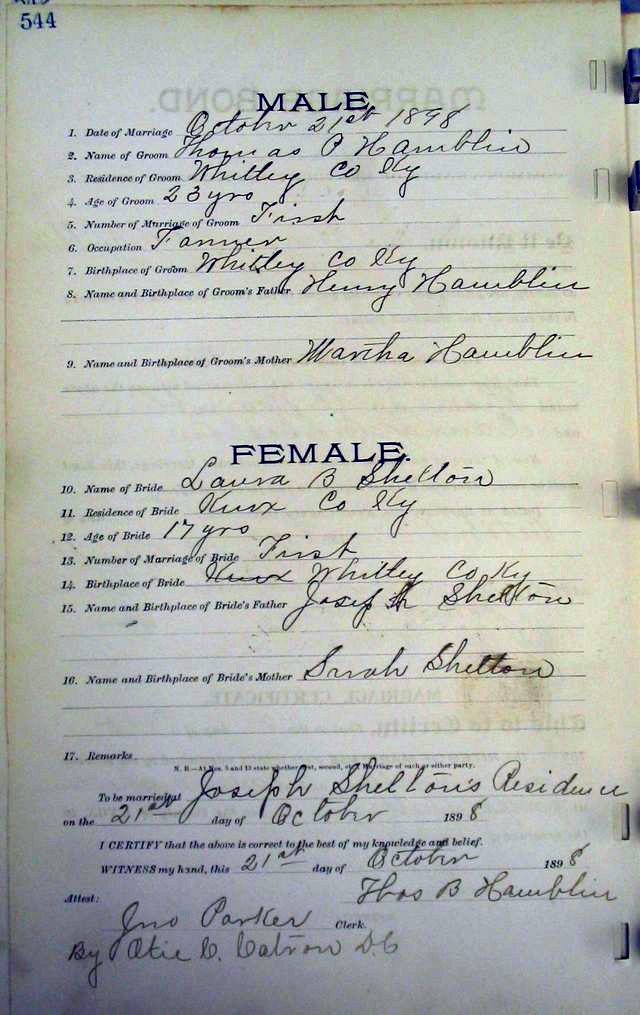 544
MALE.
1. Date of Marriage October 21st 1898
2. Name of Groom Thomas P Hamblin
3. Residence of Groom Whitley Co Ky
4. Age of Groom 23 yrs
5. Number of Marriage of Groom First
6. Occupation Farmer
7. Birthplace of Groom Whitley Co Ky
8. Name and Birthplace of Groom's Father Henry Hamblin
9. Name and Birthplace of Groom's Mother Martha Hamblin
FEMALE.
10. Name of Bride Laura B Shelton
11. Residence of Bride Knox Co Ky
12. Age of Bride 17 yrs
13. Number of Marriage of Bride First
14. Birthplace of Bride Knox Whitley Co Ky
15. Name and Birthplace of Bride's Father Joseph Shelton
16. Name and Birthplace of Bride's Mother Sarah Shelton
17. Remarks
N. B.—At Nos. 5 and 13 state whether first, second, etc., Marriage of each or either party.
To be married at Joseph Shelton's Residence
on the 21st day of October 1898
I CERTIFY that the above is correct to the best of my knowledge and belief.
WITNESS my hand, this 21st day of October 1898
Thos B Hamblin
Attest:
Jno Parker Clerk.
By Otie C. Catron D.C